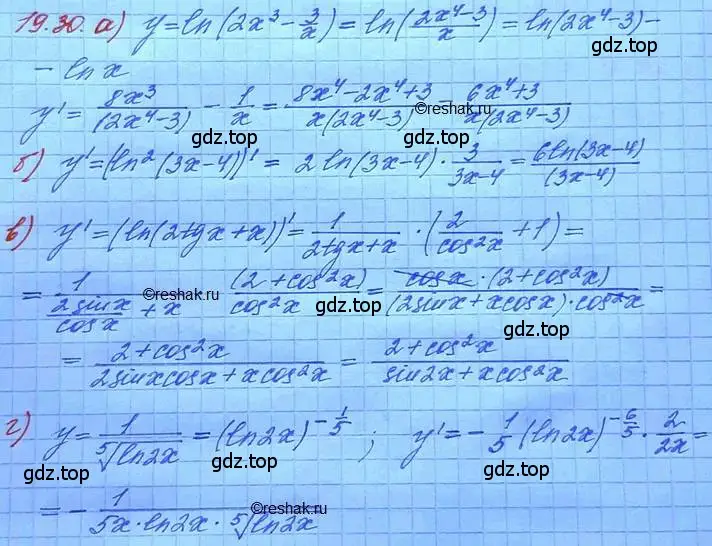 19.30. а) y = ln(2x³ - 3/x) = ln((2x⁴-3)/x) = ln(2x⁴-3) -
gdz.top
- ln x
y' = 8x³/(2x⁴-3) - 1/x = (8x⁴-2x⁴+3)/(x(2x⁴-3)) = (6x⁴+3)/(x(2x⁴-3))
©reshak.ru
gdz.top gdz.top
б) y' = (ln²(3x-4))' = 2 ln(3x-4) · 3/(3x-4) = 6ln(3x-4)/(3x-4)
gdz.top
в) y' = (ln(2tgx+x))' = 1/(2tgx+x) · (2/cos²x + 1) =
gdz.top
= 1/(2sinx/cosx + x) (2+cos²x)/cos²x = cosx·(2+cos²x)/((2sinx+xcosx)·cos²x) =
©reshak.ru
gdz.top gdz.top
= (2+cos²x)/(2sinxcosx+xcos²x) = (2+cos²x)/(sin2x+xcos²x)
gdz.top
г) y = 1/⁵√ln2x = (ln2x)^(-1/5) ; y' = -1/5 (ln2x)^(-6/5) · 2/2x =
gdz.top gdz.top
= - 1/(5x·ln2x·⁵√ln2x)
©reshak.ru
gdz.top